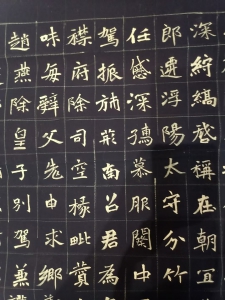 深紵縞啓稱在朝宜
郎遷浮陽太守分竹
任感深慕服關中
駕振旆荊南召君為
襟府除司空掾毗贊
味每辭父先申求鄉
趙燕除皇子別駕兼